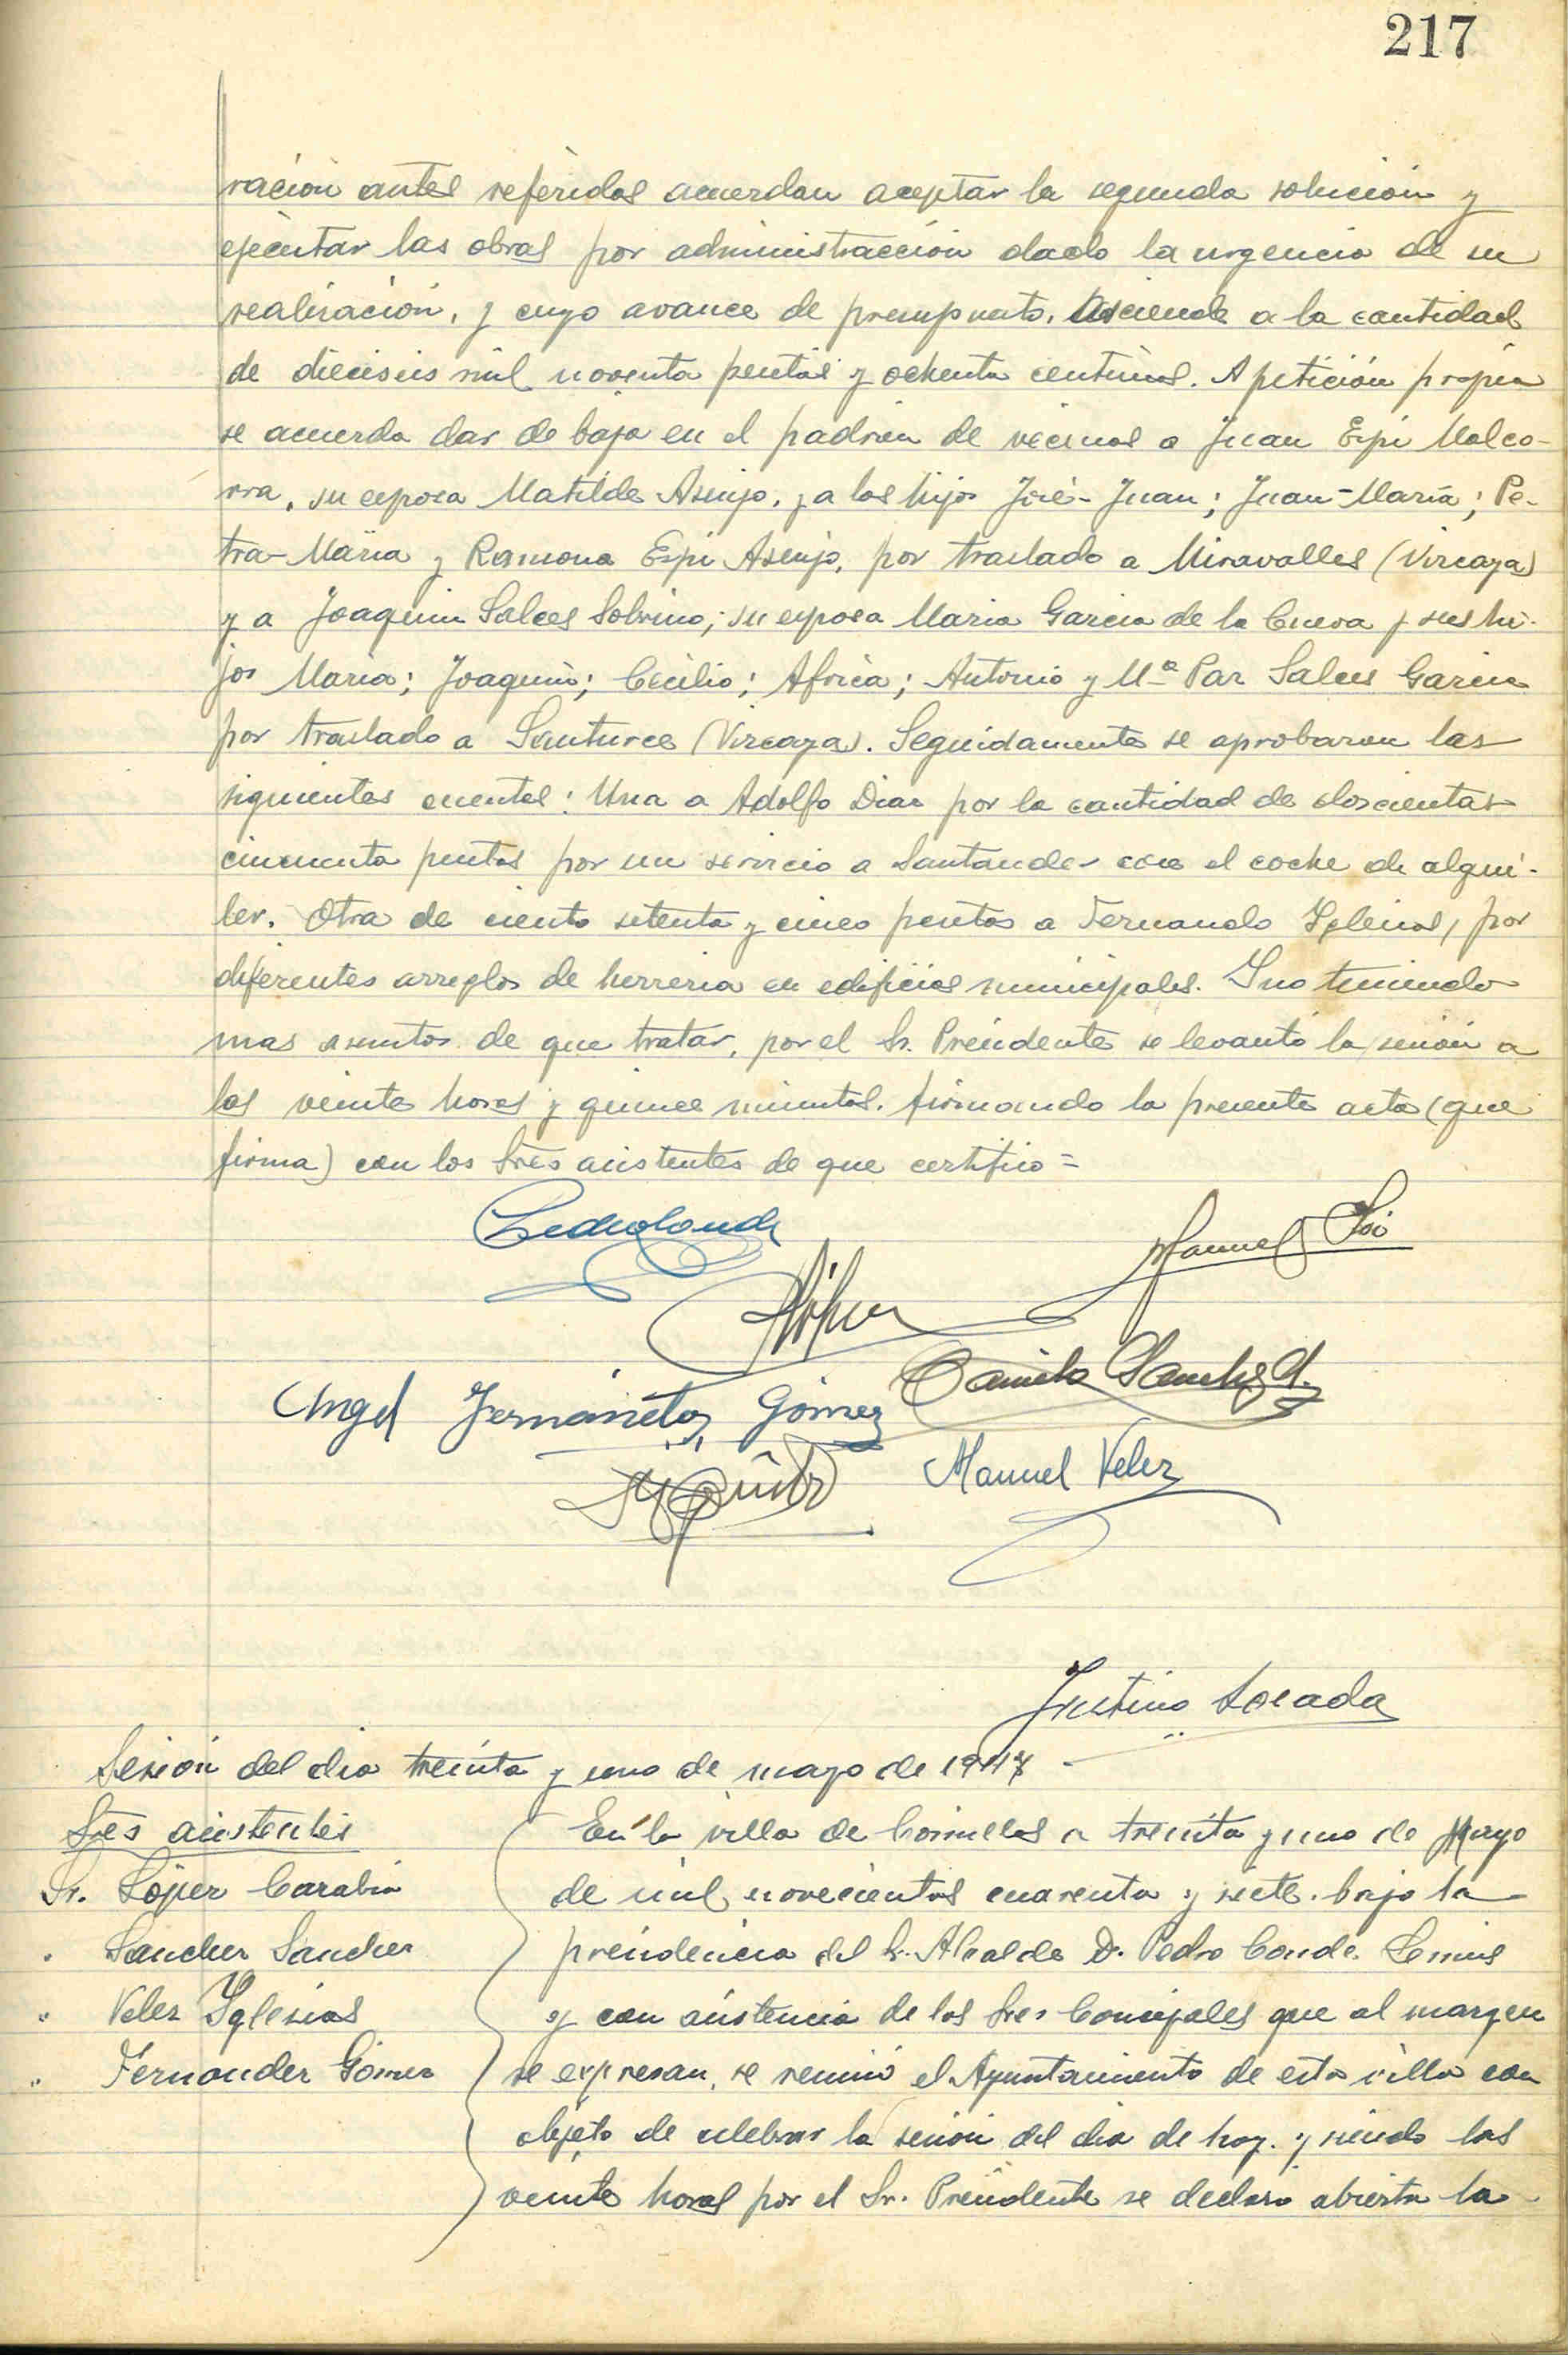 217
ración antes referidas acuerdan aceptar la segunda solución y
ejecutar las obras por administracción dado la urgencia de su
realización, y cuyo avance de presupuesto, asciende a la cantidad
de dieciseis mil noventa pesetas y ochenta centimos. A petición propia
se acuerda dar de baja en el padrón de vecinos a Juan Espi Malco-
rra, su esposa Matilde Asenjo, y a los hijos José-Juan; Juan-María; Pe-
tra-María y Ramona Espi Asenjo, por traslado a Miravalles (Vizcaya)
y a Joaquin Salces Sobrino; su esposa Maria Garcia de la Cueva y sus hi-
jos María; Joaquín; Cecilio; Africa; Antonio y Mª Paz Salces Garcia
por traslado a Santurce (Vizcaya). Seguidamente se aprobaron las
siguientes cuentas: Una a Adolfo Diaz por la cantidad de doscientas
cincuenta pesetas por un servicio a Santander con el coche de alqui-
ler. Otra de ciento setenta y cinco pesetas a Fernando Iglesias, por
diferentes arreglos de herreria en edificios municipales. Y no teniendo
mas asuntos de que tratar, por el Sr. Presidente se levantó la sesión a
las veinte horas y quince minutos. firmando la presente acta (que
firma) con los Sres asistentes de que certifico =
Pedro Conde
Manuel
López
Angel Fernández Gómez
Camilo Sanchez
Manuel Velez
Justino Losada
Sesión del dia treinta y uno de mayo de 1947 -
Sres asistentes
Sr. López Carabia
" Sanchez Sanchez
" Velez Iglesias
" Fernandez Gómez
En la villa de Comillas a treinta y uno de Mayo
de mil novecientos cuarenta y siete. bajo la
presidencia del Sr. Alcalde D. Pedro Conde
y con asistencia de los Sres Concejales que al margen
se expresan, se reunió el Ayuntamiento de esta villa con
objeto de celebrar la sesion del dia de hoy. y siendo las
veinte horas por el Sr. Presidente se declaró abierta la